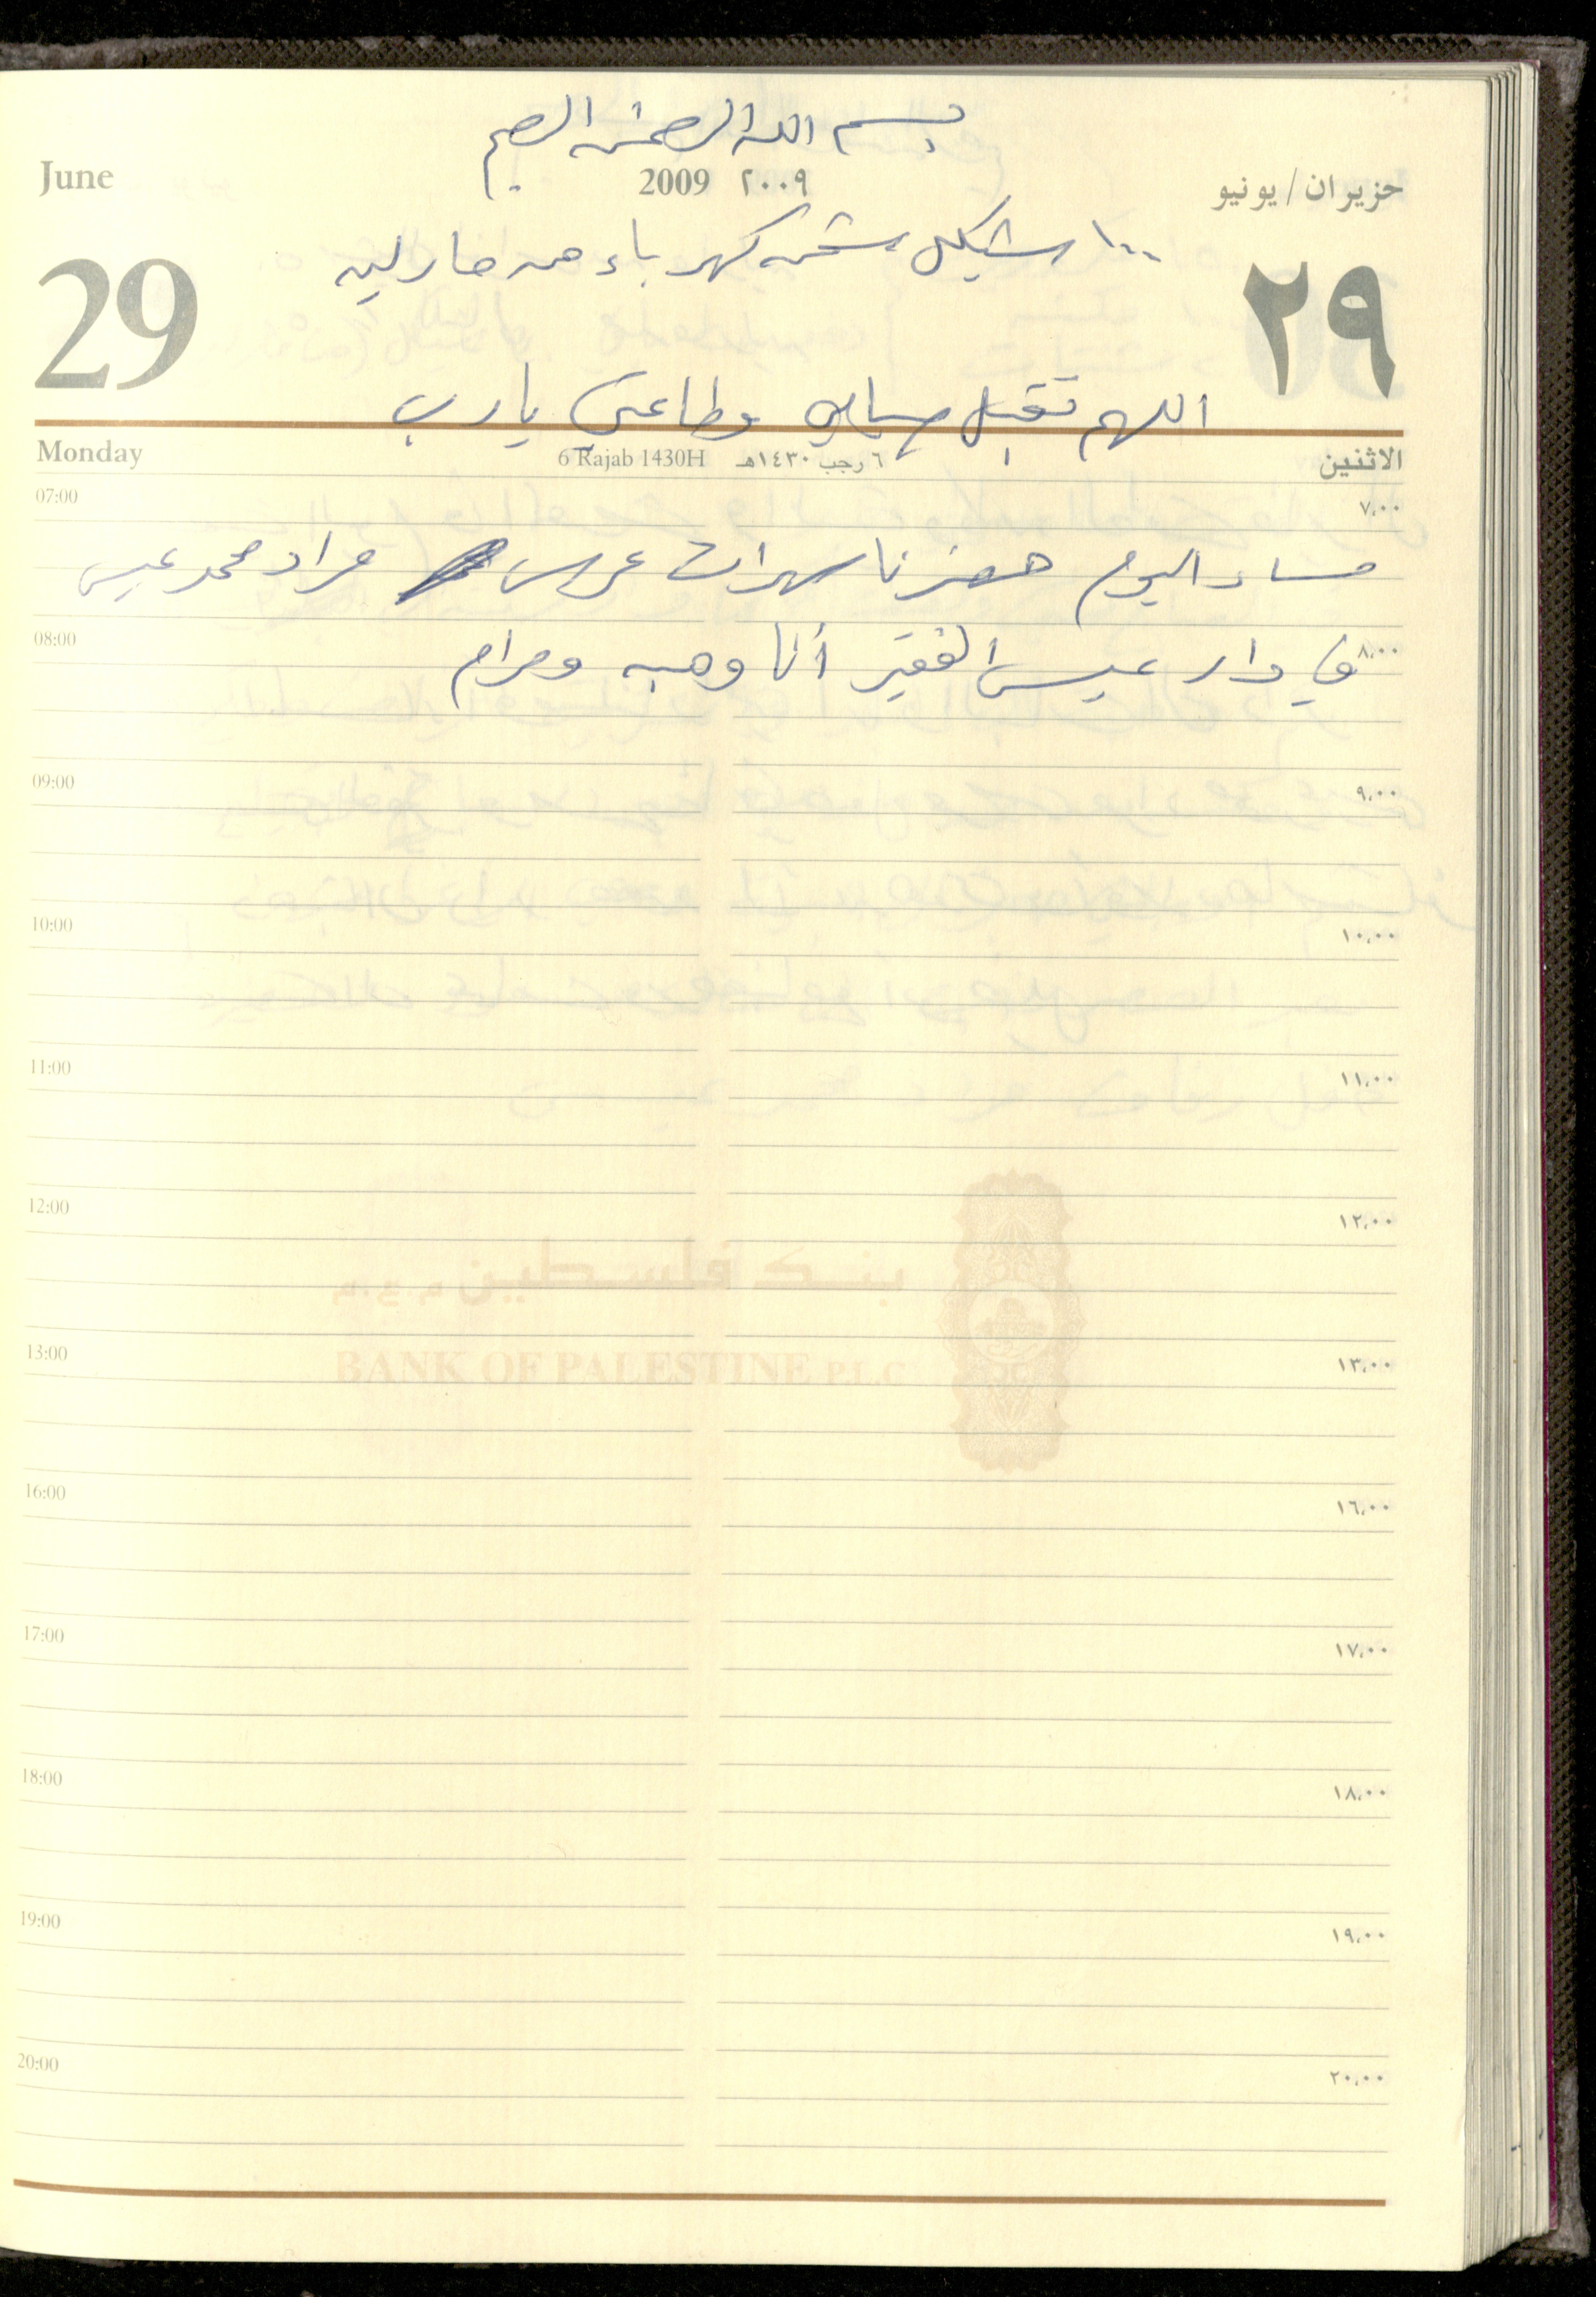 بسم الله الرحمن الرحيم
June 2009 ٢٠٠٩ حزيران / يونيو
١٠٠ شيكل ثمن كهرباء من مارلين
29 ٢٩
اللهم تقبل صيامي وطاعتي يا رب
Monday 6 Rajab 1430H ٦ رجب ١٤٣٠هـ الاثنين
07:00 ٧,٠٠
مساء اليوم حضرنا سهرات عرس مراد محمد عيسى
08:00 ٨,٠٠
في دار عيسى الفقير أنا وهبه ومرام
09:00 ٩,٠٠
10:00 ١٠,٠٠
11:00 ١١,٠٠
12:00 ١٢,٠٠
بنك فلسطين م.ع.م
13:00 ١٣,٠٠
BANK OF PALESTINE P.L.C
16:00 ١٦,٠٠
17:00 ١٧,٠٠
18:00 ١٨,٠٠
19:00 ١٩,٠٠
20:00 ٢٠,٠٠